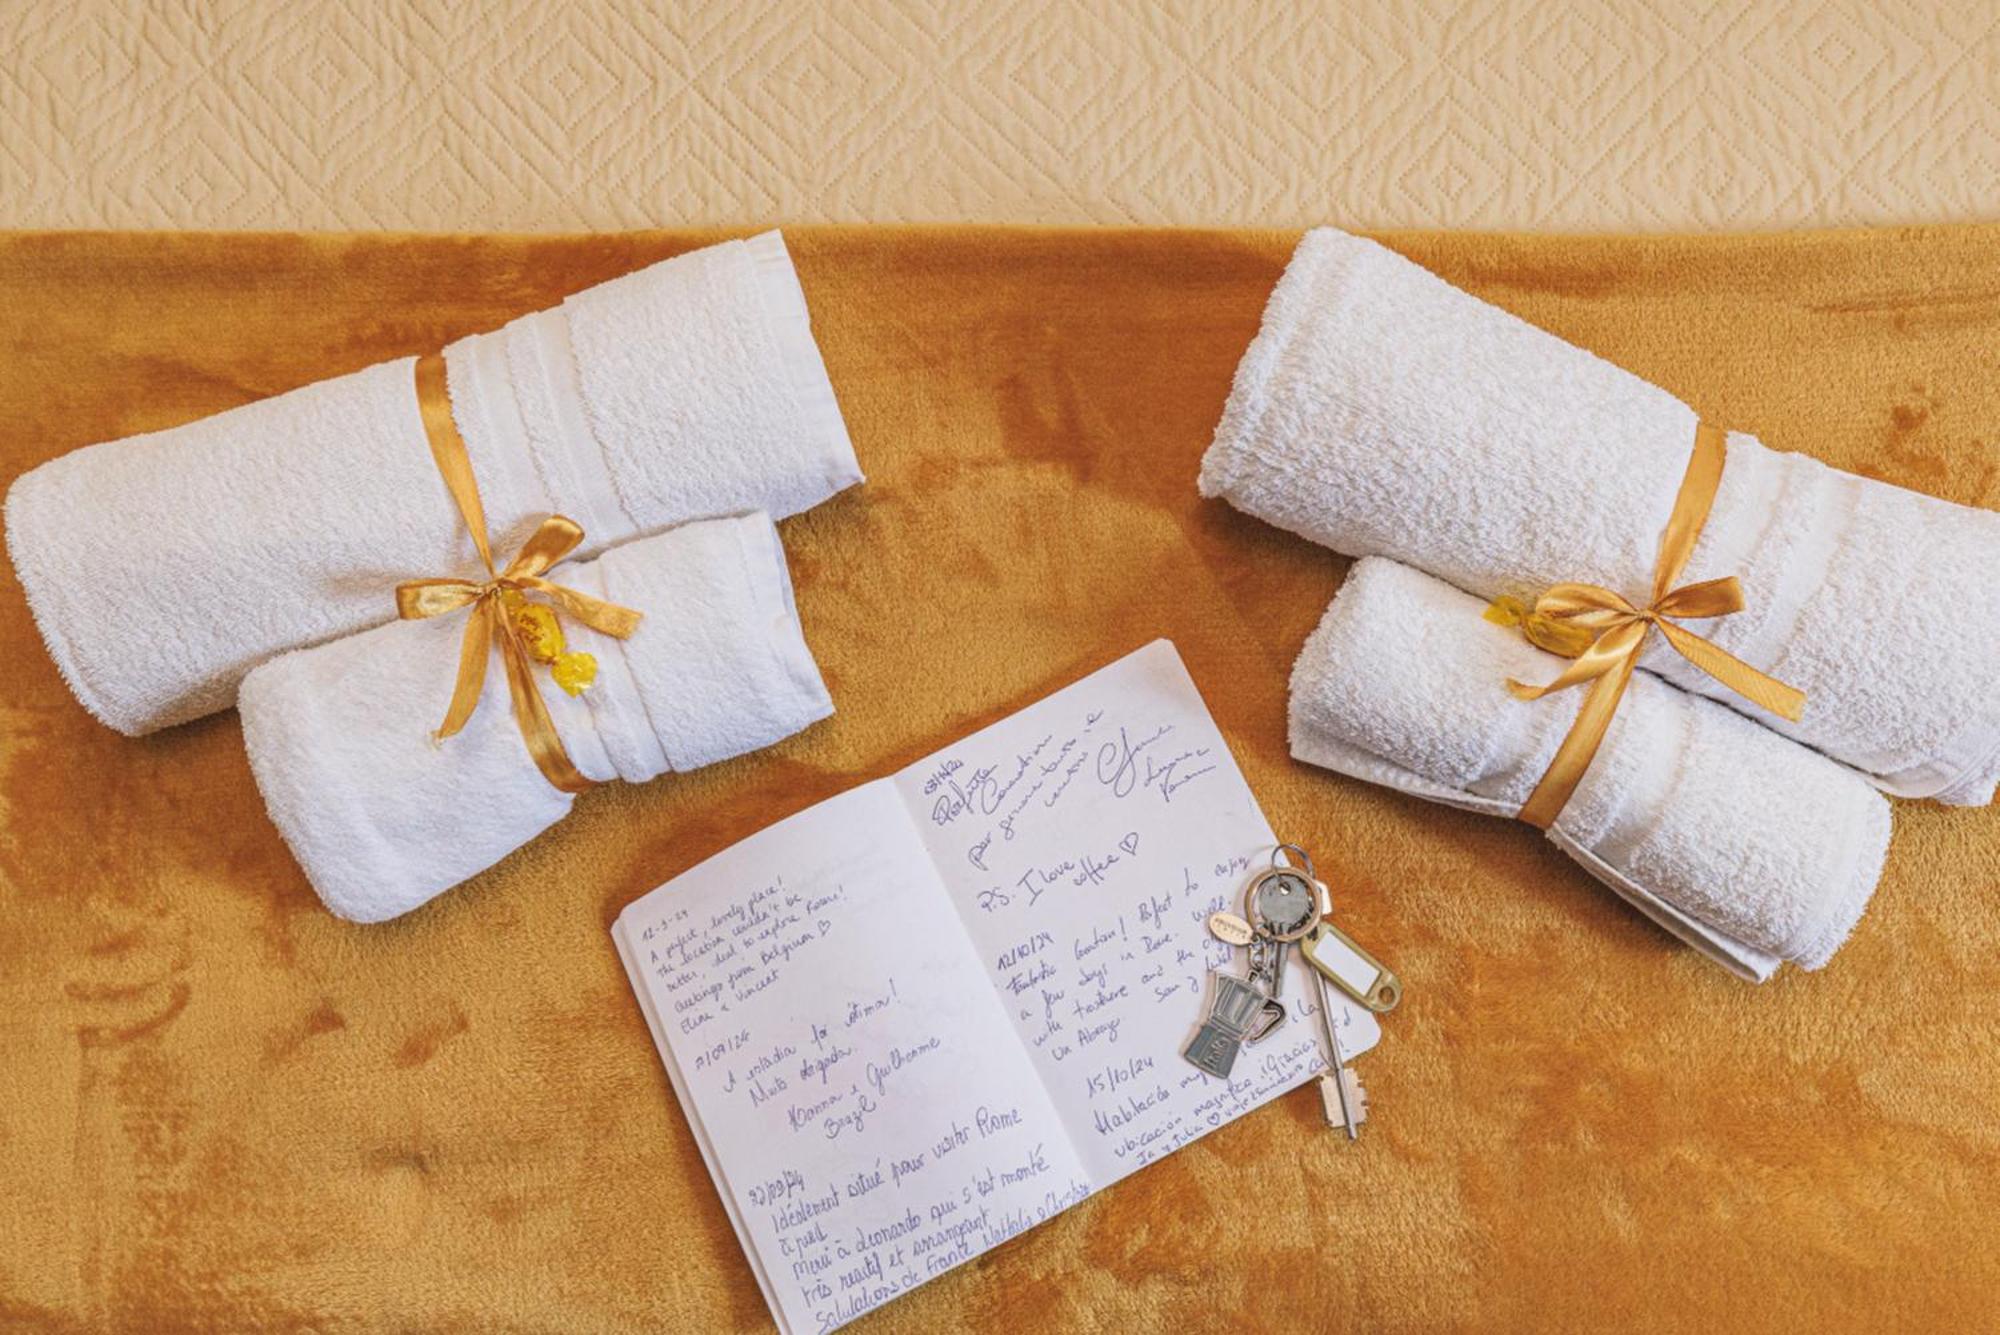 12-9-24
A perfect, lovely place!
The location couldn't be
better, ideal to explore Rome!
Greetings from Belgium ♡
Eline & Vincent
7/09/24
A estadia foi ótima!
Muito obrigada.
e Guilherme
Brazil
22/09/24
Idéalement situé pour visiter Rome
à pied.
Merci à Leonardo qui s'est montré
très réactif et arrangeant
Salutations de France Nathalie &
Perfetta
Location
per
P.S. I love
coffee ♡
12/10/24
Fantastic location! Perfect to enjoy
a few days in Rome. Well
with and the
Un Abrazo
15/10/24
Habitación muy
ubicación magnífica ¡Gracias
y Julia ♡